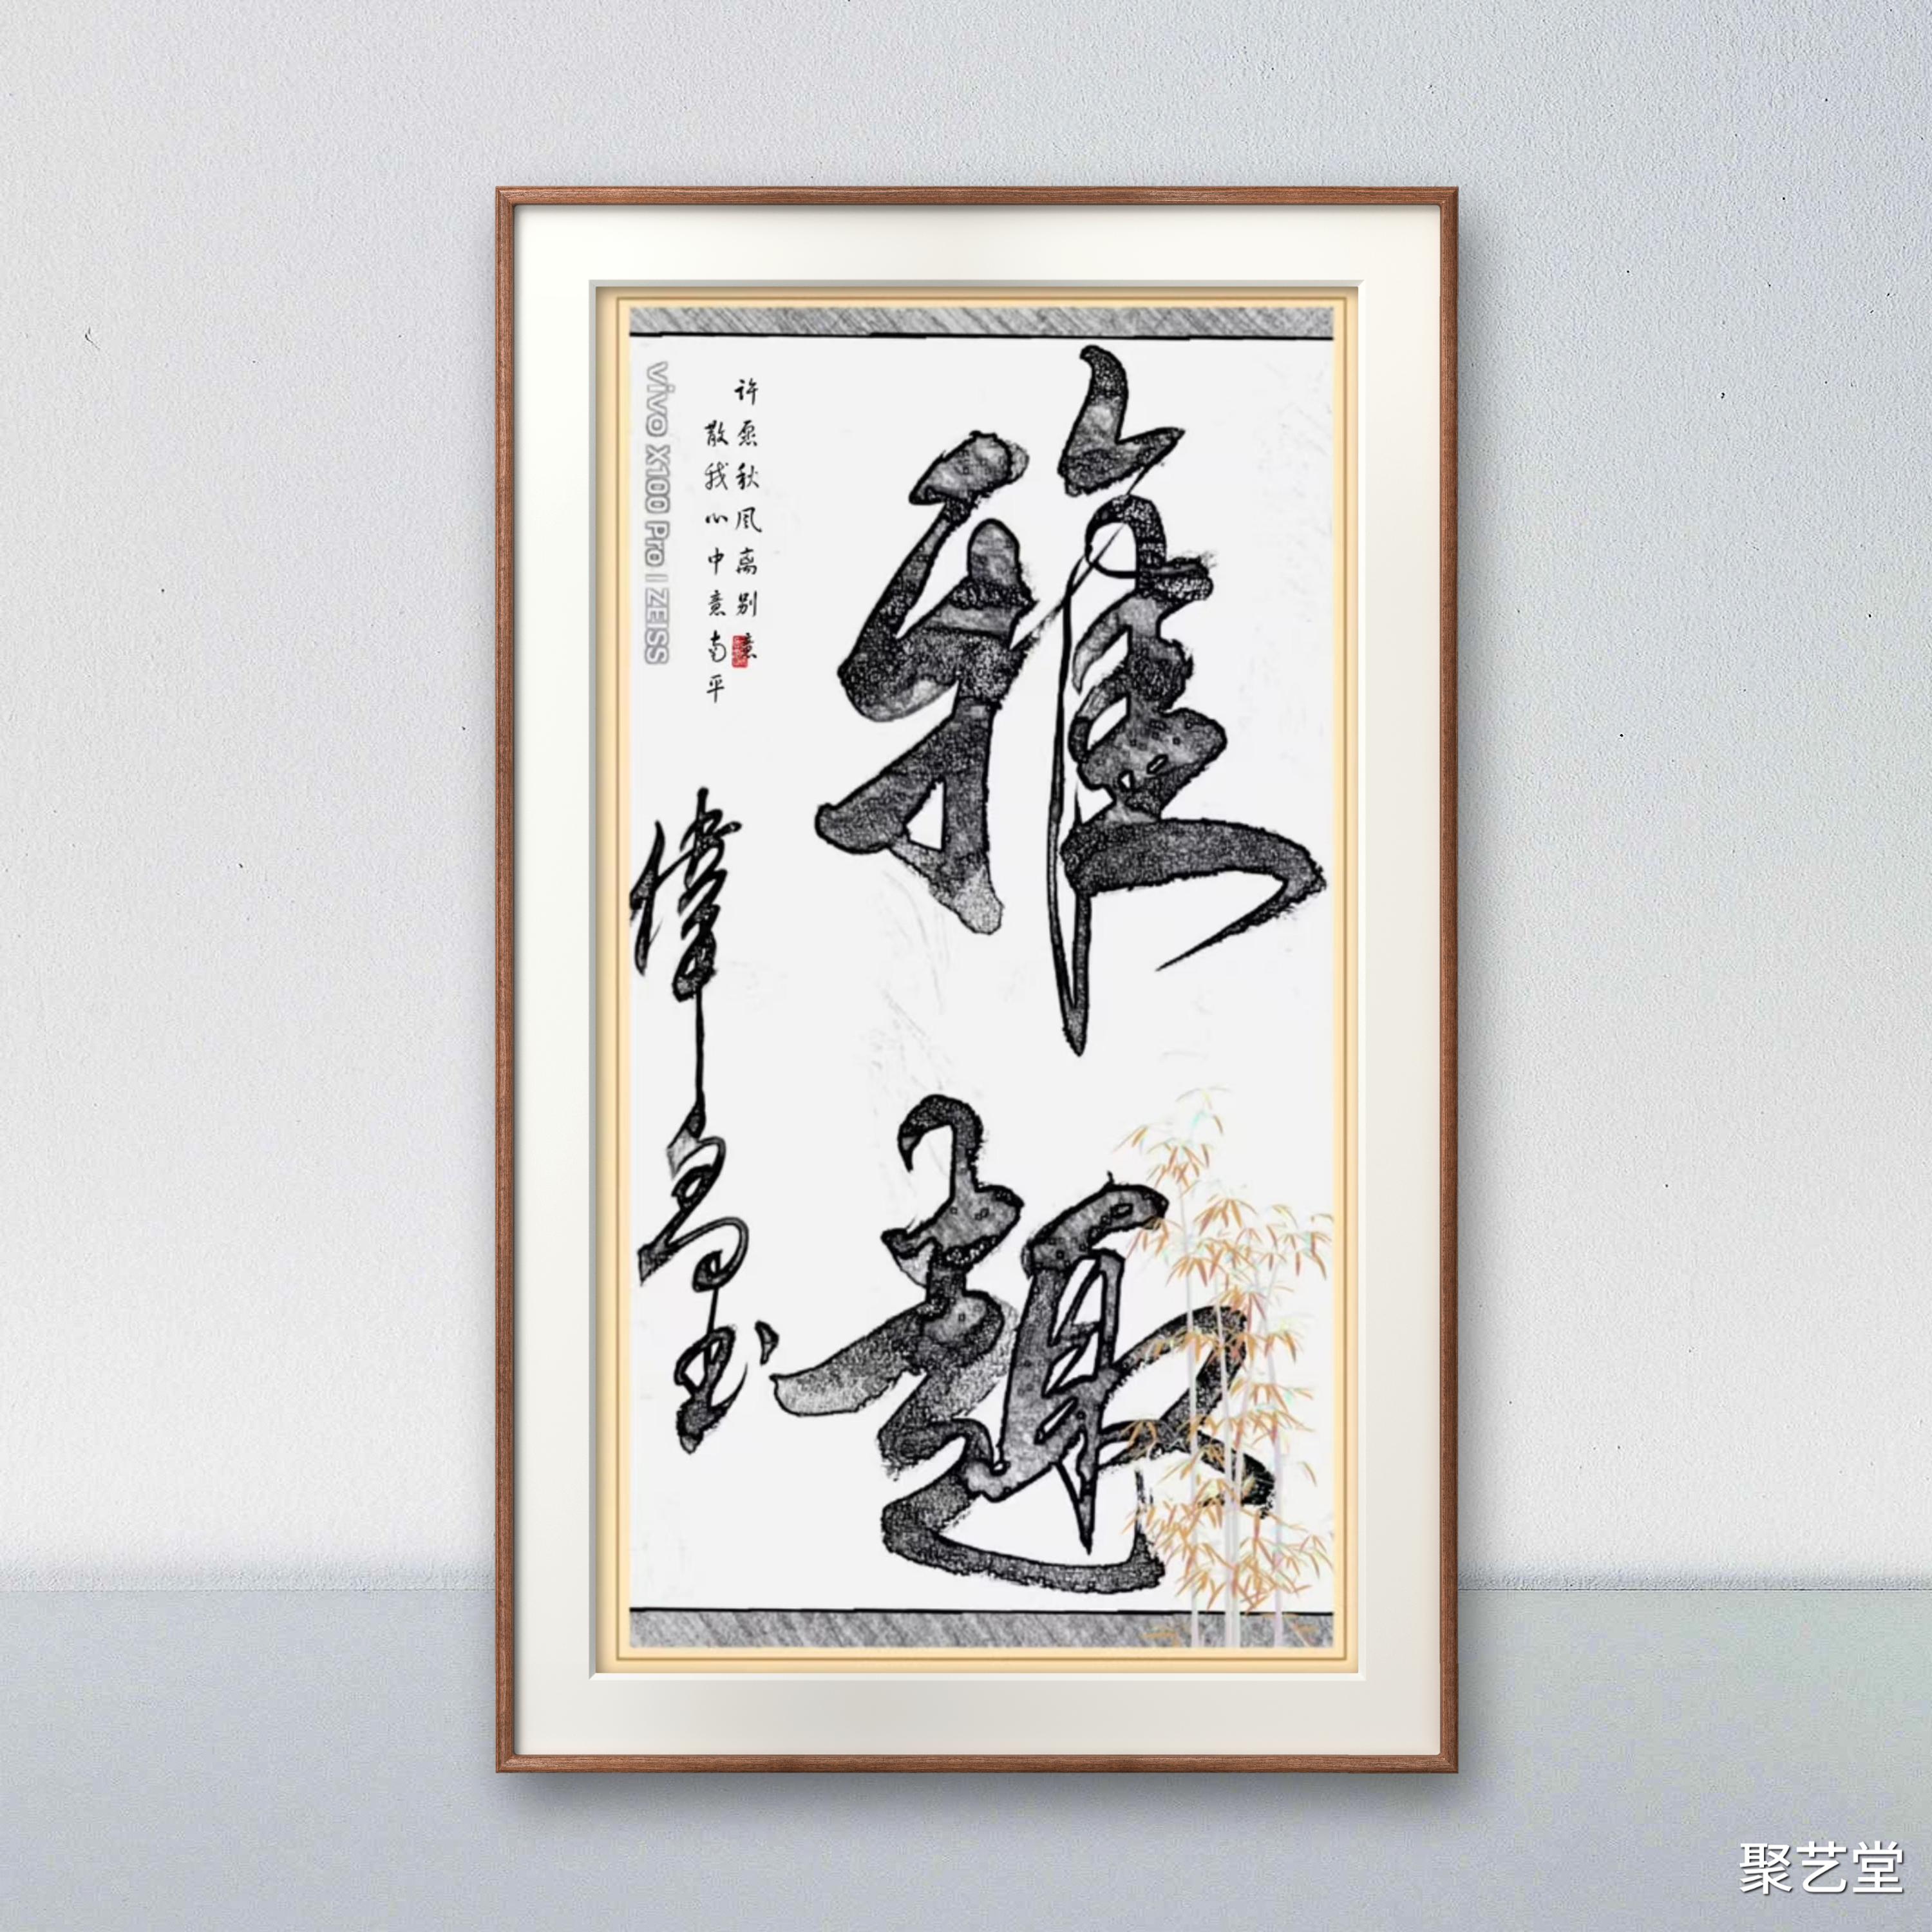 雅趣
许愿秋风离别意
散我心中意南平
vivo X100 Pro | ZEISS
聚艺堂